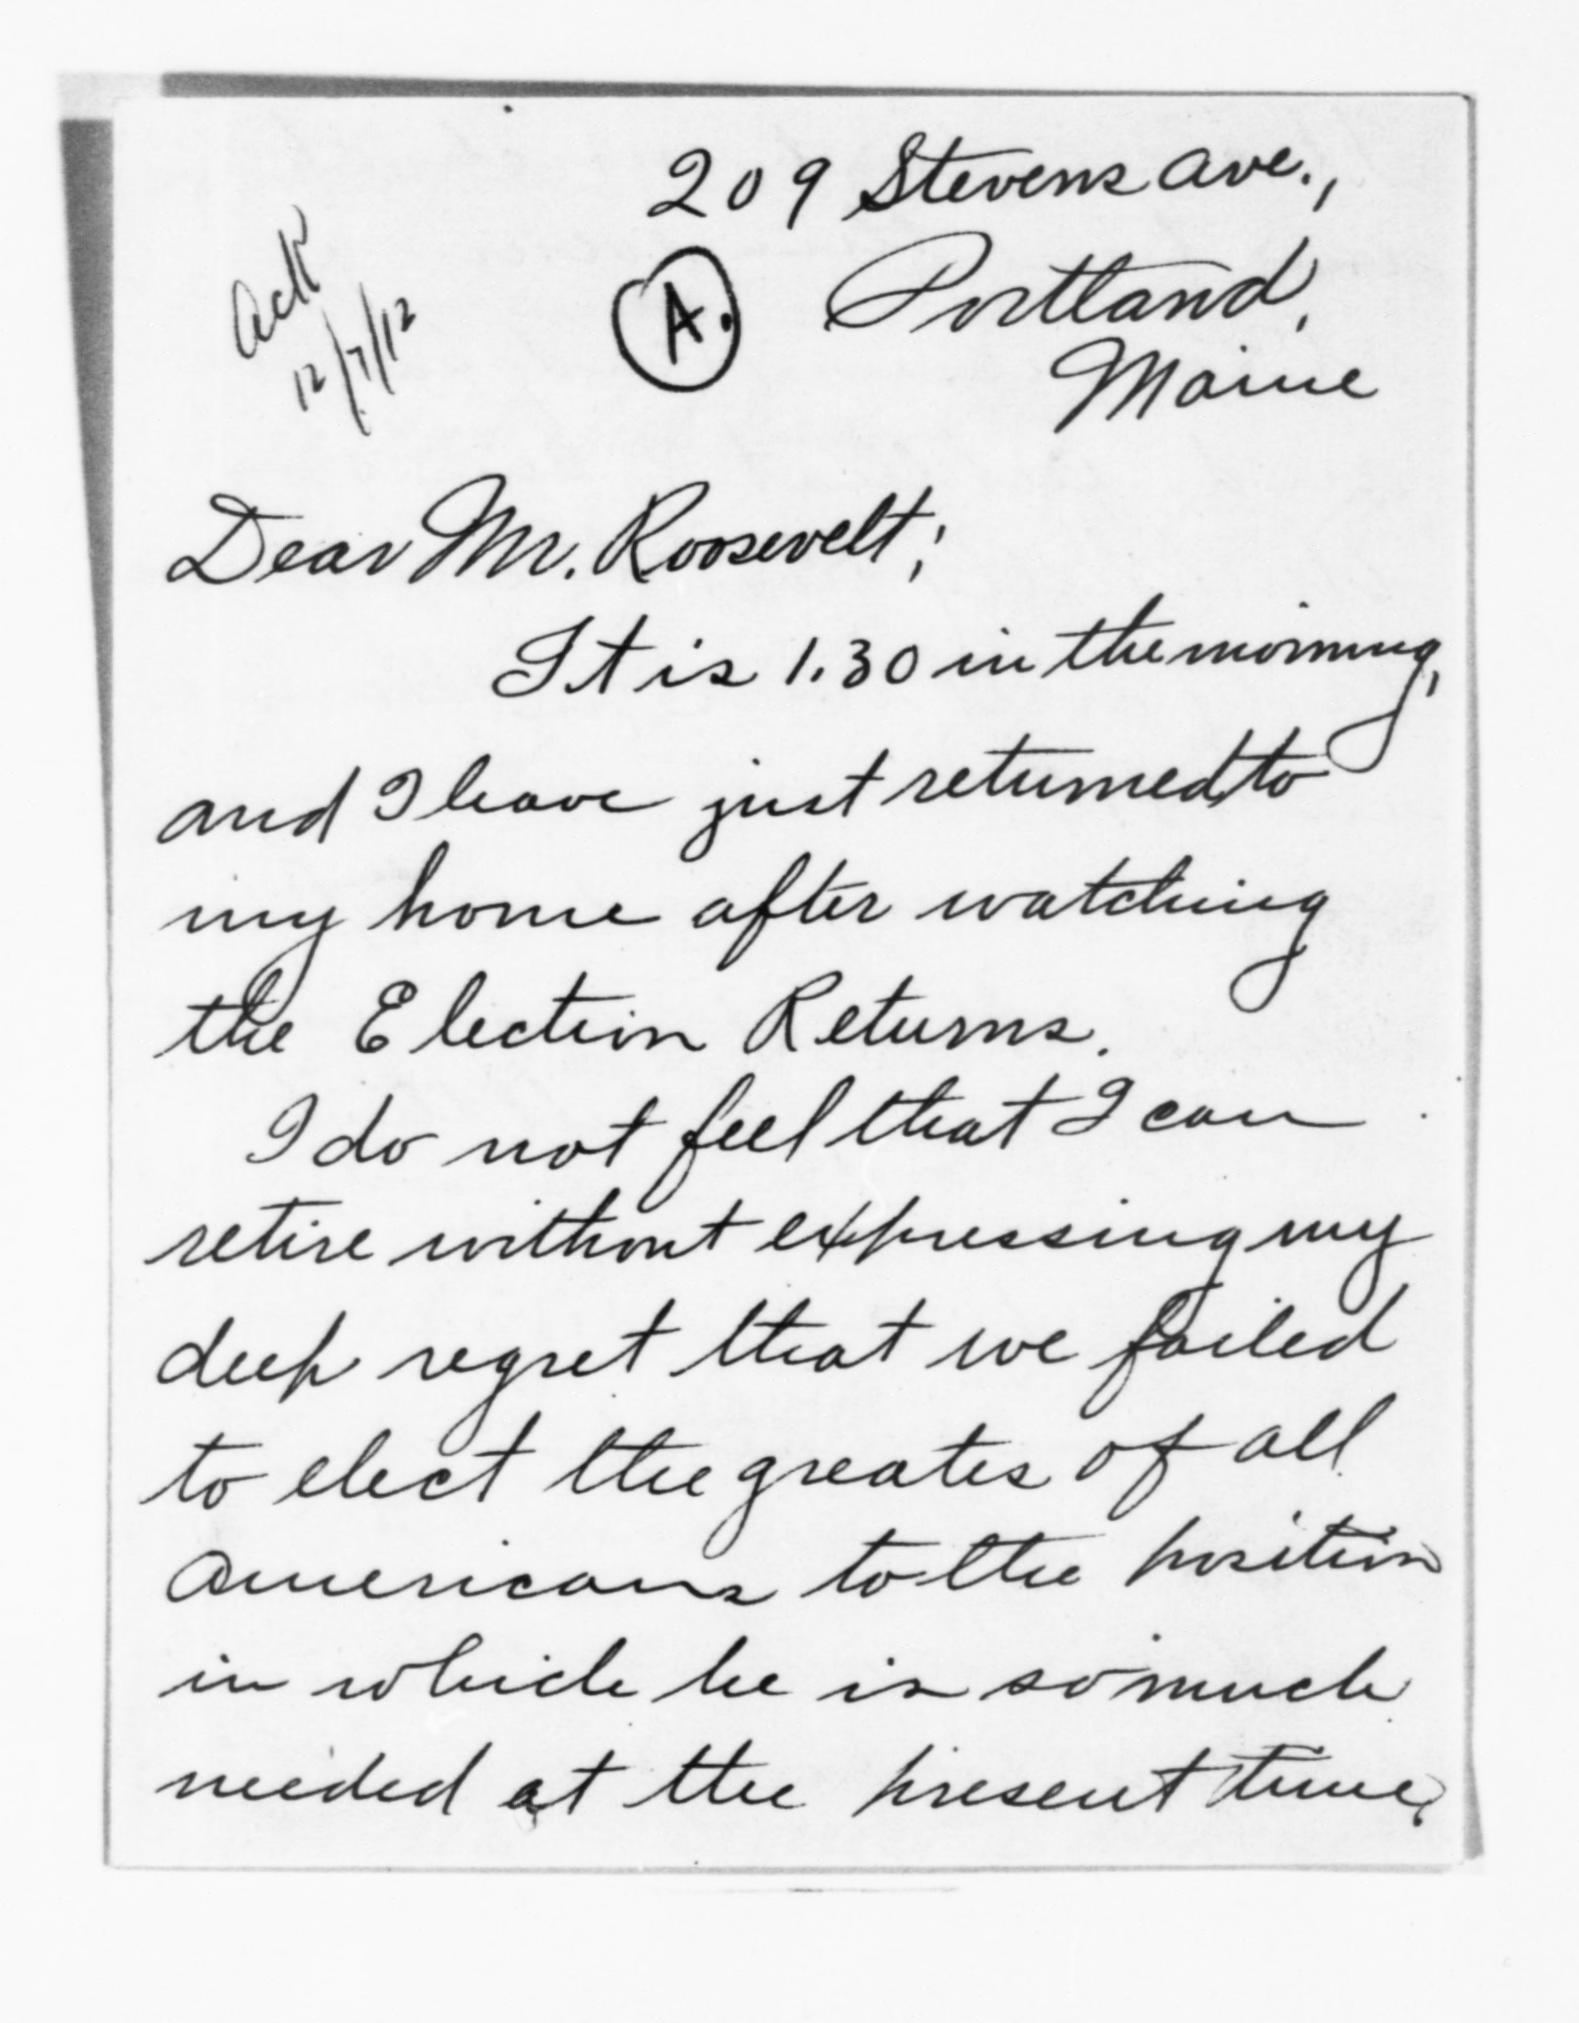 209 Stevens Ave.,
Ack
12/7/12
A.
Portland,
Maine
Dear Mr. Roosevelt;
It is 1.30 in the morning,
and I have just returned to
my home after watching
the Election Returns.
I do not feel that I can
retire without expressing my
deep regret that we failed
to elect the greates of all
Americans to the position
in which he is so much
needed at the present time,